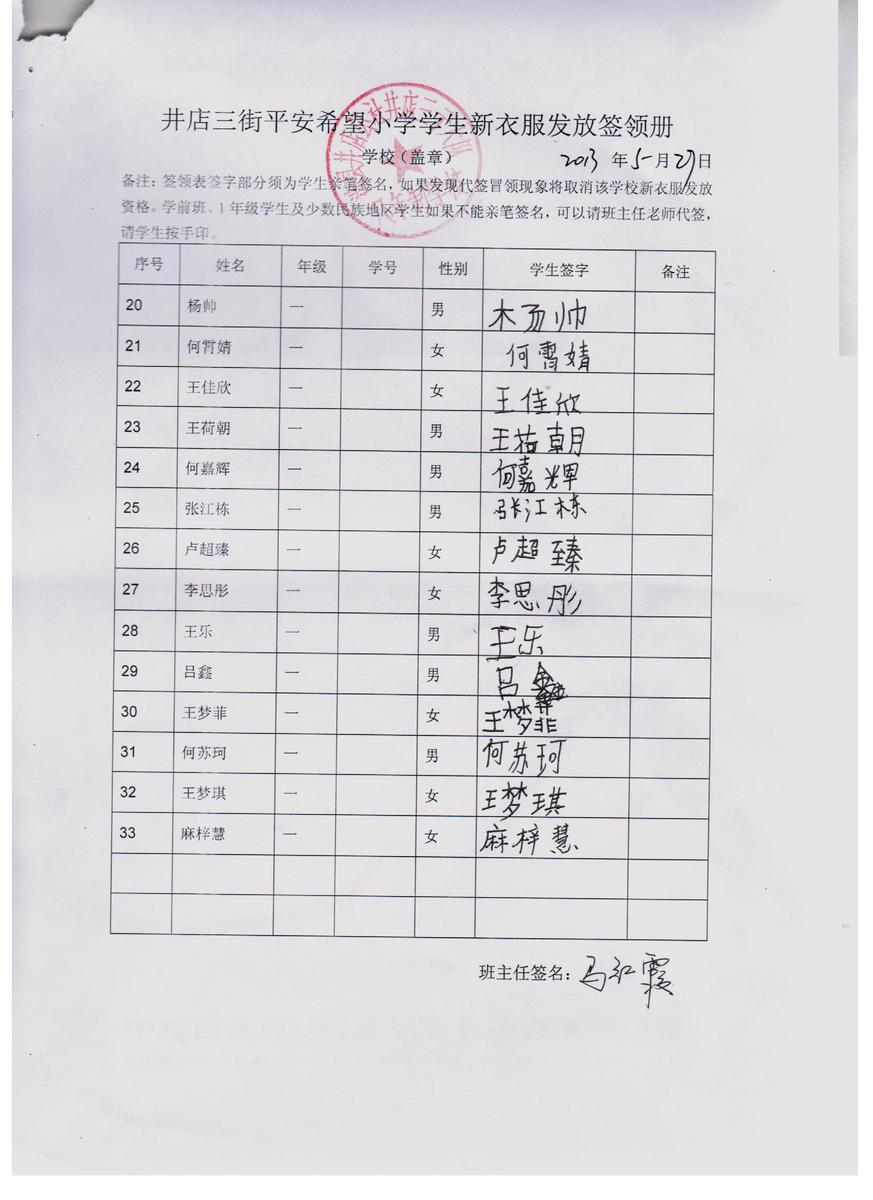 井店三街平安希望小学学生新衣服发放签领册
学校（盖章） 2013 年 5 月 27 日
备注：签领表签字部分须为学生亲笔签名，如果发现代签冒领现象将取消该学校新衣服发放
资格。学前班、1年级学生及少数民族地区学生如果不能亲笔签名，可以请班主任老师代签，
请学生按手印。
序号 姓名 年级 学号 性别 学生签字 备注
20 杨帅 一 男 杨帅
21 何霄婧 一 女 何霄婧
22 王佳欣 一 女 王佳欣
23 王荷朝 一 男 王荷朝
24 何嘉辉 一 男 何嘉辉
25 张江栋 一 男 张江栋
26 卢超臻 一 女 卢超臻
27 李思彤 一 女 李思彤
28 王乐 一 男 王乐
29 吕鑫 一 男 吕鑫
30 王梦菲 一 女 王梦菲
31 何苏珂 一 男 何苏珂
32 王梦琪 一 女 王梦琪
33 麻梓慧 一 女 麻梓慧
班主任签名：马红霞